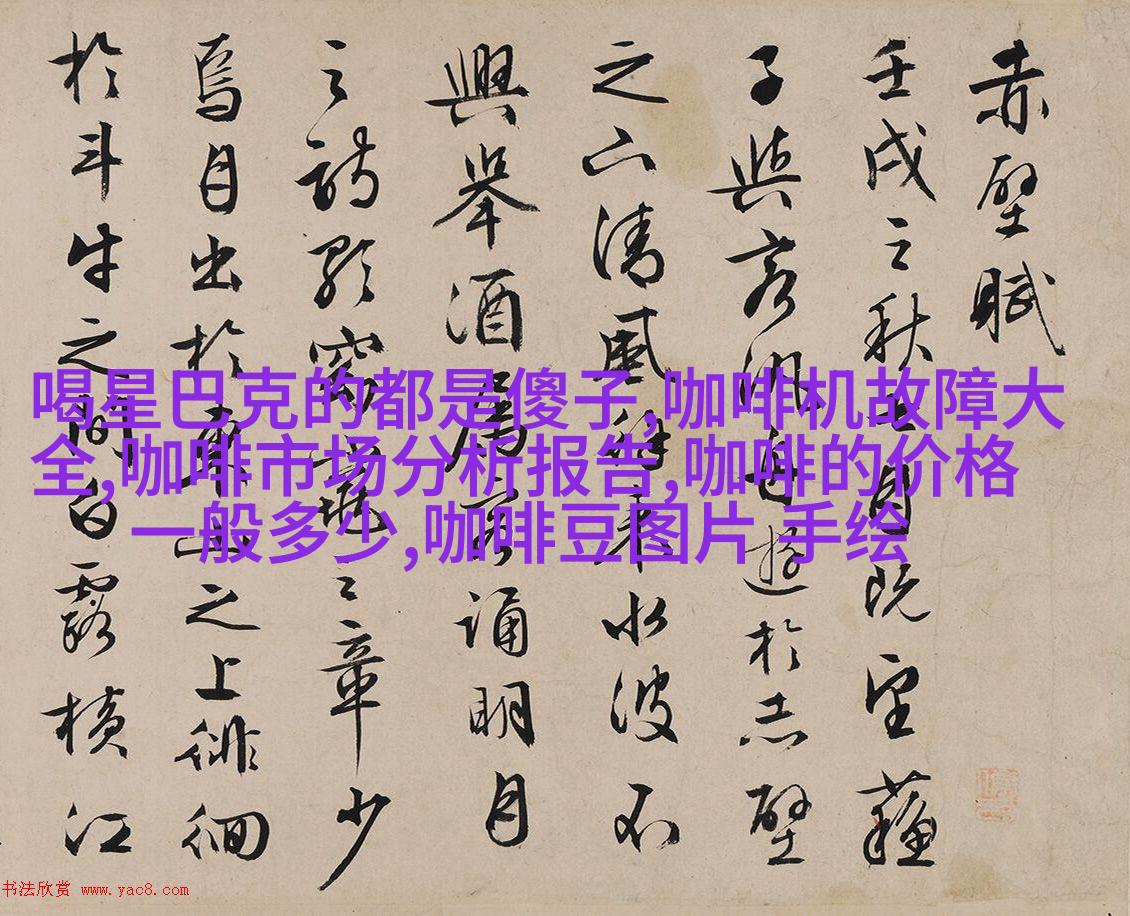 赤壁賦
壬戌之秋七月既望蘇
子與客汎舟遊於赤壁
之下清風徐來水波不
興舉酒屬客誦明月
之詩歌窈窕之章少
焉月出於東山之上徘徊
於斗牛之間白露橫江
喝星巴克的都是傻子,咖啡机故障大
全,咖啡市场分析报告,咖啡的价格
一般多少,咖啡豆图片 手绘
书法欣赏 www.yac8.com